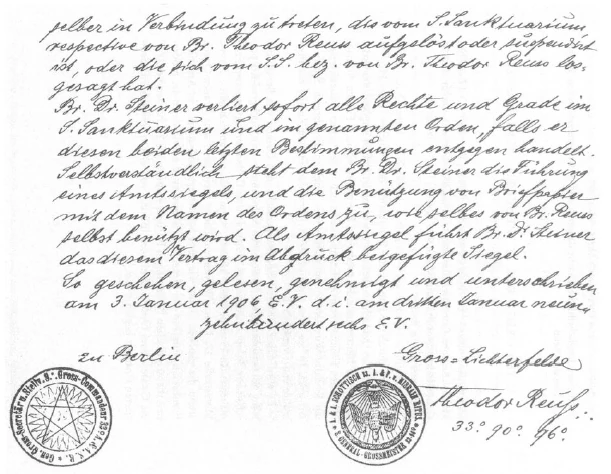 selber in Verbindung zu treten, die vom S. Sanktuarium,
respective von Br. Theodor Reuss aufgelöst oder suspendirt
ist, oder die sich vom S.S. bez. von Br. Theodor Reuss los-
gesagt hat.
Br. Dr. Steiner verliert sofort alle Rechte und Grade im
S. Sanktuarium und im genannten Orden, falls er
diesen beiden letzten Bestimmungen entgegen handelt.
Selbstverständlich steht dem Br. Dr. Steiner die Führung
eines Amtssiegels, und die Benützung von Briefpapier
mit dem Namen des Ordens zu, wie selbes von Br. Reuss
selbst benützt wird. Als Amtssiegel führt Br. Dr. Steiner
das diesem Vertrag im Abdruck beigefügte Siegel.
So geschehen, gelesen, genehmigt und unterschrieben
am 3. Januar 1906, E.V. d. i. am dritten Januar neun-
zehnhundert sechs E.V.
zu Berlin
Gross-Lichterfelde
Theodor Reuss
33° 90° 96°
Gross-Commandeur